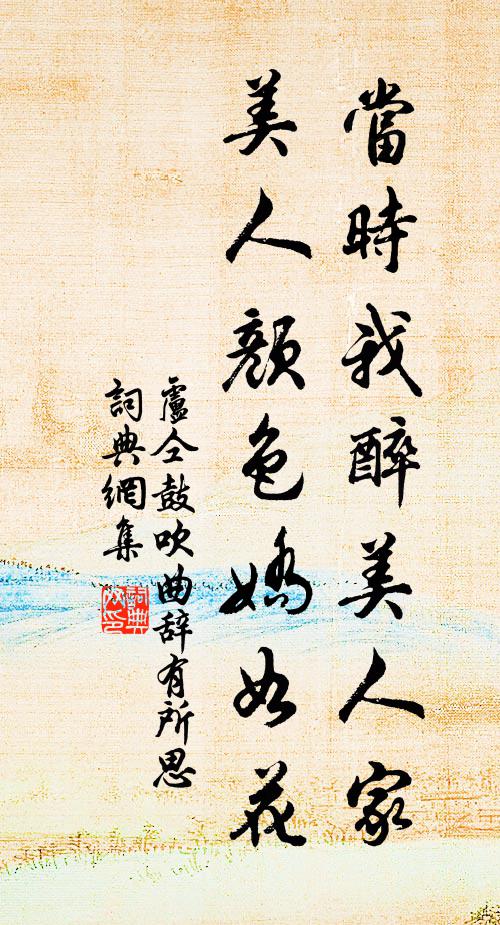 當時我醉美人家
美人顏色嬌如花
盧仝鼓吹曲辞有所思
詞典網集